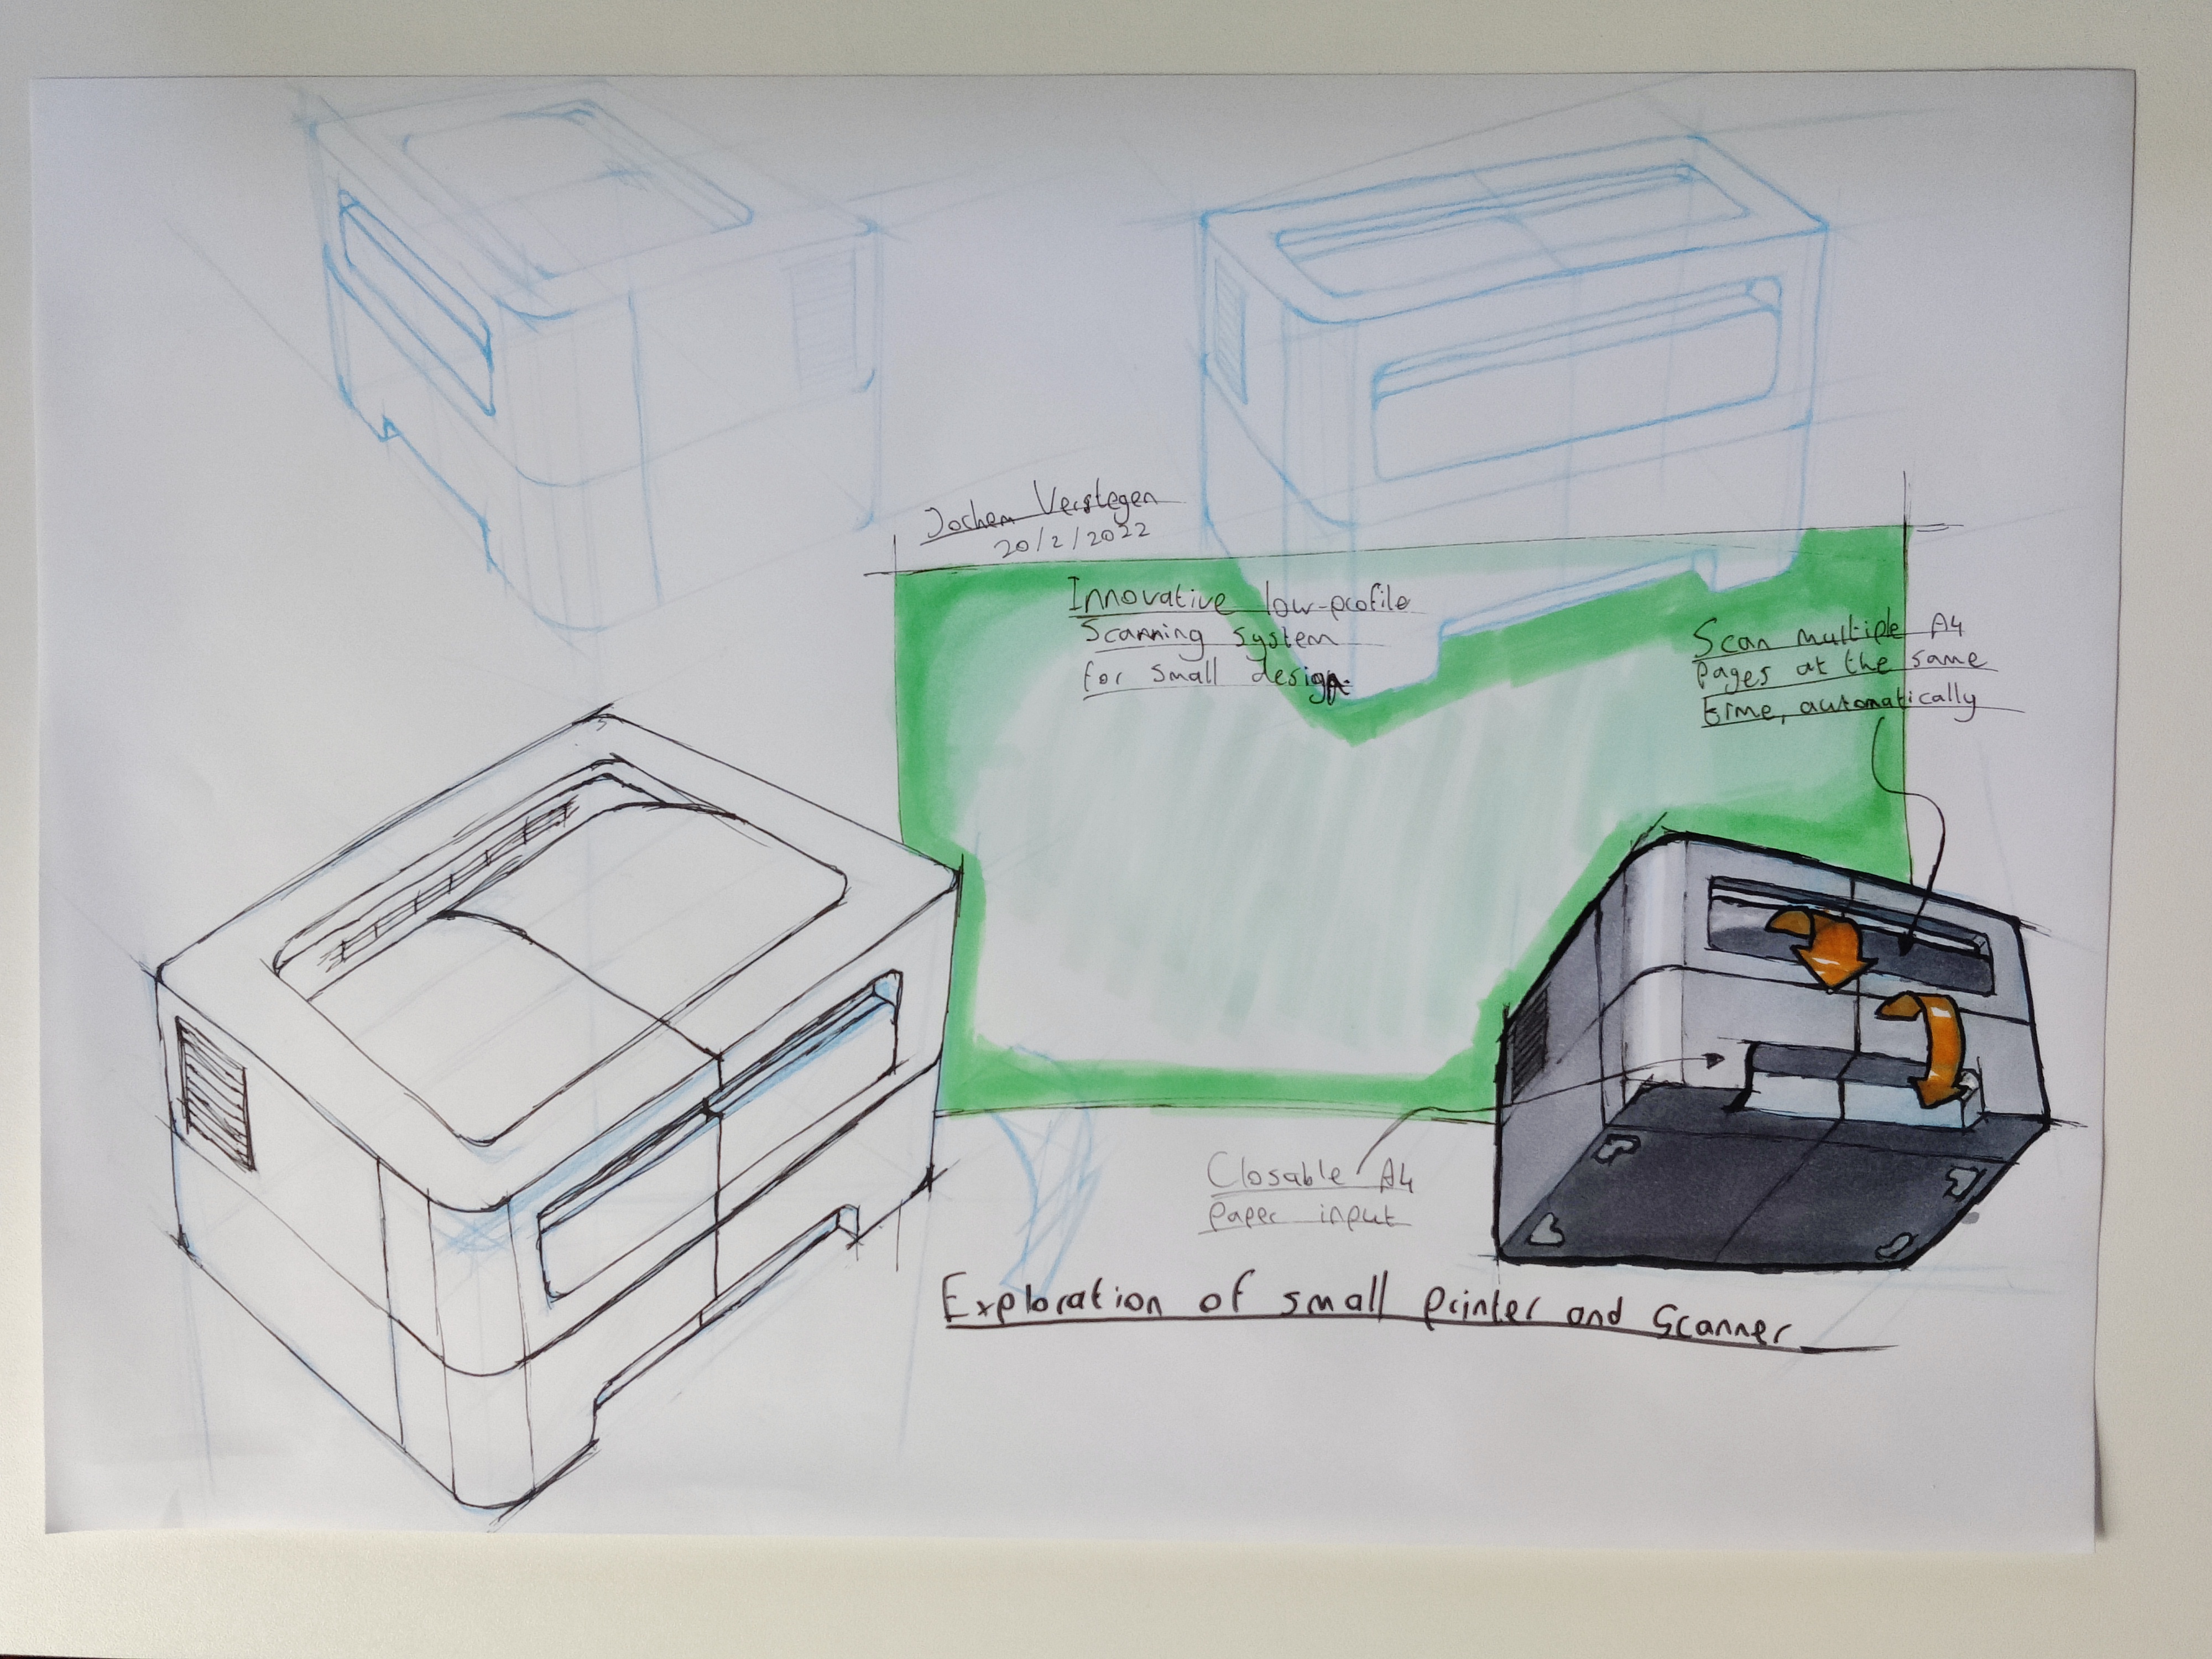 Jochem Verstegen
20/2/2022
Innovative low-profile
Scanning system
for small design.
Scan multiple A4
pages at the same
time, automatically
Closable A4
paper input
Exploration of small printer and Scanner